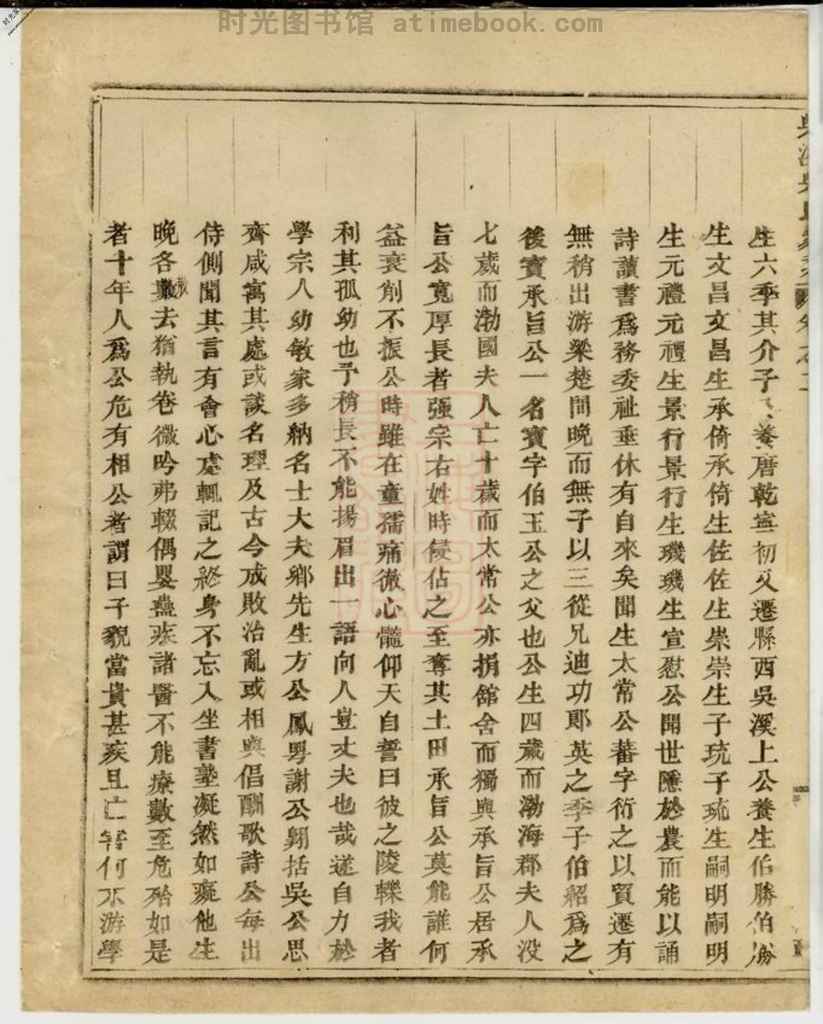 时光图书馆 atimebook.com
生六季其介子公養唐乾寧初又遷縣西吳溪上公養生伯勝伯勝
生文昌文昌生承倚承倚生佐佐生崇崇生子珫子珫生嗣明嗣明
生元禮元禮生景行景行生璣璣生宣慰公開世隱於農而能以誦
詩讀書爲務委祉垂休有自來矣聞生太常公蕃字衍之以貿遷有
無稍出游梁楚間晚而無子以三從兄迪功郎英之季子伯紹爲之
後寶承旨公一名寶字伯玉公之父也公生四歲而渤海郡夫人没
七歲而渤國夫人亡十歲而太常公亦捐舘舍而獨與承旨公居承
旨公寬厚長者强宗右姓時侵佔之至奪其土田承旨公莫能誰何
益衰削不振公時雖在童孺痛徹心髓仰天自誓曰彼之陵轢我者
利其孤幼也予稍長不能揚眉出一語向人豈丈夫也哉遂自力於
學宗人幼敏家多納名士大夫鄉先生方公鳳粤謝公翱括吳公思
齊咸寓其處或談名理及古今成敗治亂或相與倡酬歌詩公每出
侍側聞其言有會心處輒記之終身不忘入坐書塾凝然如癡他生
晚各散去猶執卷微吟弗輟偶嬰蠱疾諸醫不能療數至危殆如是
者十年人爲公危有相公者謂曰子貌當貴甚疾且亡害何不游學